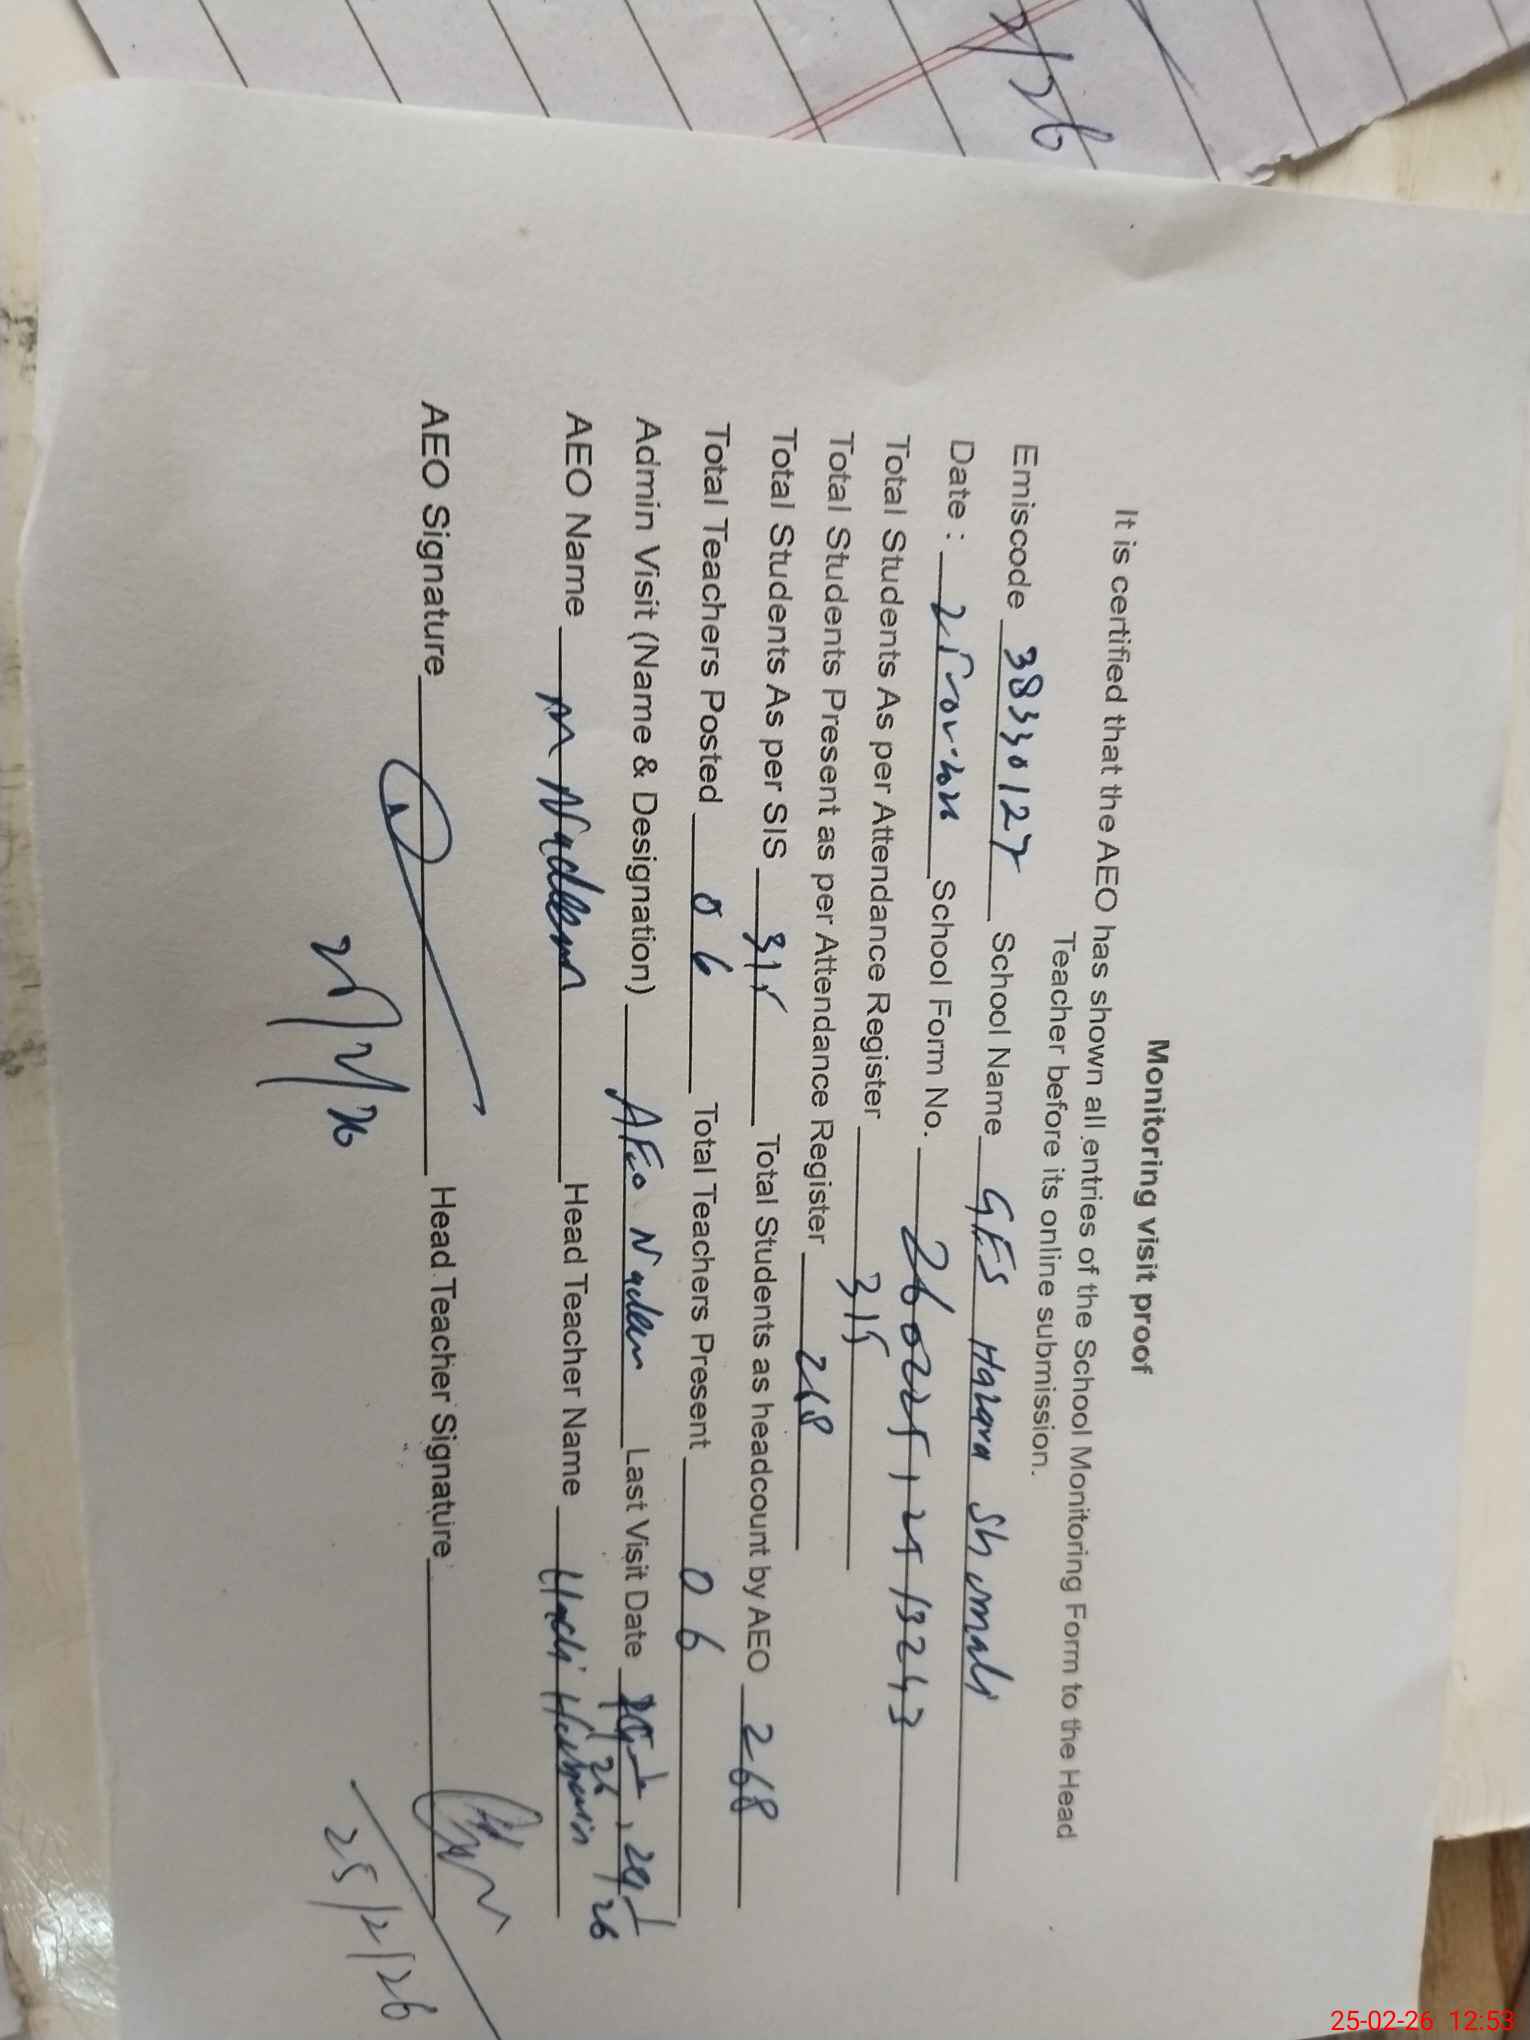 Monitoring visit proof
It is certified that the AEO has shown all entries of the School Monitoring Form to the Head
Teacher before its online submission.
Emiscode 38330127 School Name GES Hazara Shumali
Date : School Form No. 260225125 13243
Total Students As per Attendance Register 315
Total Students Present as per Attendance Register 268
Total Students As per SIS 315 Total Students as headcount by AEO 268
Total Teachers Posted 06 Total Teachers Present 06
Admin Visit (Name & Designation) AEO Nadeem Last Visit Date
AEO Name M Nadeem Head Teacher Name
AEO Signature Head Teacher Signature
25/2/26
25/2/26
25-02-26 12:53